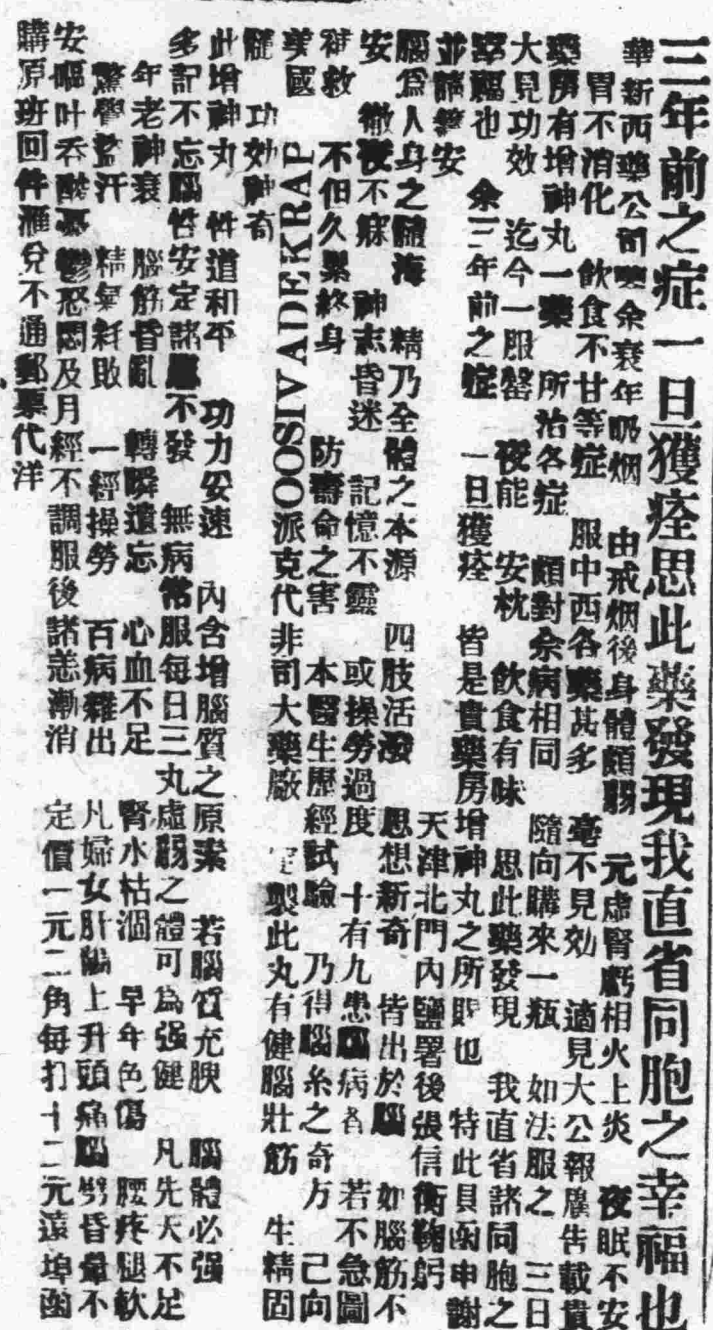 三年前之症一旦獲痊思此藥發現我直省同胞之幸福也
華新西藥公司鑒余衰年吸烟 由戒烟後身體頗弱 元虛腎虧相火上炎 夜眠不安
胃不消化 飲食不甘等症 服中西各藥甚多 毫不見効 適見大公報廣告載貴
藥房有增神丸一藥 所治各症 頗對余病相同 隨向購來一瓶 如法服之 三日
大見功效 迄今一服罄 夜能 安枕 飲食有味 思此藥發現 我直省諸同胞之
幸福也 余三年前之症 一旦獲痊 皆是貴藥房增神丸之所賜也 特此具函申謝
並請籌安 天津北門內鹽署後張信衡鞠躬
腦爲人身之髓海 精乃全體之本源 四肢活潑 思想新奇 皆出於腦 如腦筋不
安 徹夜不寐 神志昏迷 記憶不靈 或操勞過度 十有九患腦病者 若不急圖
補救 不但久累終身 防壽命之害 本醫生歷經試驗 乃得腦系之奇方 己向
美國 PARKEDAVISOO派克代非司大藥廠 定製此丸有健腦壯筋 生精固
髓 功効神奇
此增神丸 性道和平 功力安速 內含增腦質之原素 若腦質充腴 腦體必强
多記不忘腦性安定諸慮不發 無病常服每日三丸虛弱之體可為强健 凡先天不足
年老神衰 腦筋昏亂 轉瞬遺忘 心血不足 腎水枯涸 早年色傷 腰疼腿軟
驚覺盜汗 精氣耗敗 一經操勞 百病雜出 凡婦女肝陽上升頭痛腦劈昏暈不
安嘔吐吞酸憂鬱恐悶及月經不調服後諸恙漸消 定價一元二角每打十二元遠埠函
購原班回件滙兌不通郵票代洋